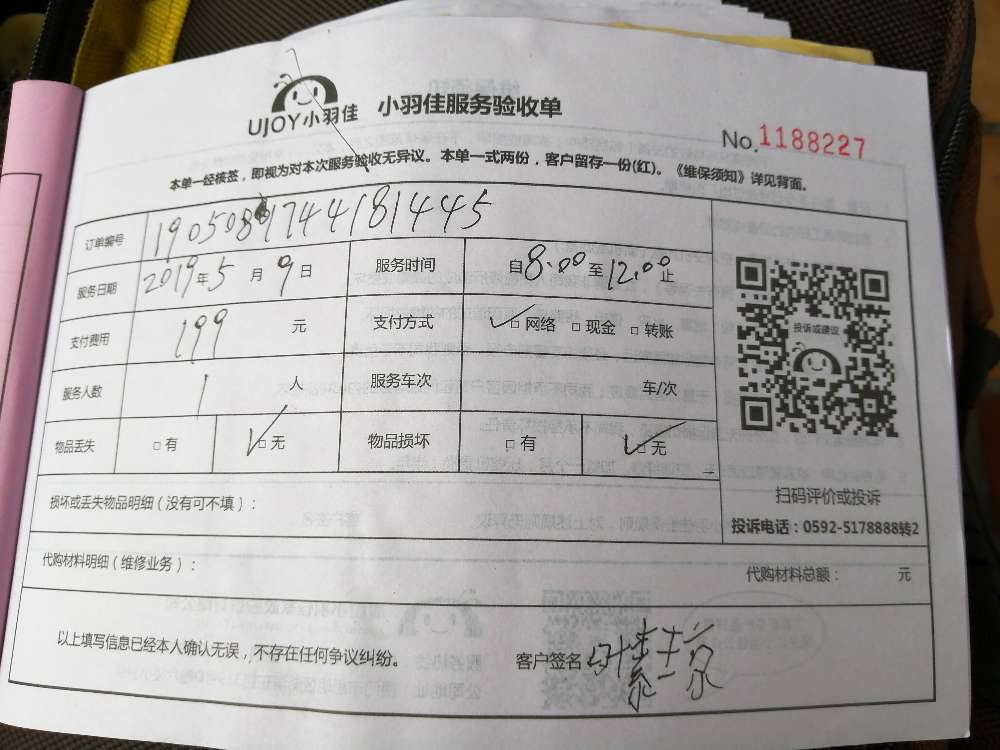 UJOY小羽佳 小羽佳服务验收单
No.1188227
本单一经核签，即视为对本次服务验收无异议。本单一式两份，客户留存一份(红)。《维保须知》详见背面。
订单编号 19050891744181445
服务日期 2019年5月9日 服务时间 自8.00至12.00止
支付费用 199 元 支付方式 ✓□网络 □现金 □转账
服务人数 1 人 服务车次 车/次
物品丢失 □有 ✓□无 物品损坏 □有 ✓□无
投诉或建议
扫码评价或投诉
投诉电话：0592-5178888转2
损坏或丢失物品明细（没有可不填）：
代购材料明细（维修业务）： 代购材料总额： 元
以上填写信息已经本人确认无误，不存在任何争议纠纷。 客户签名